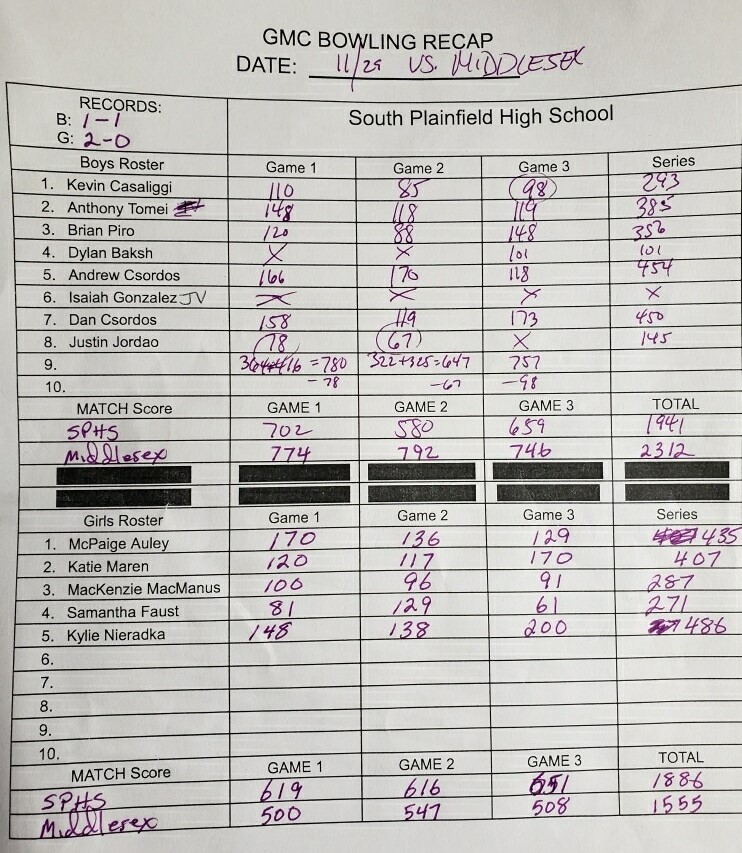 GMC BOWLING RECAP
DATE: 11/29 VS. MIDDLESEX
RECORDS:
B: 1-1
G: 2-0
South Plainfield High School
Boys Roster Game 1 Game 2 Game 3 Series
1. Kevin Casaliggi 110 85 98 293
2. Anthony Tomei 148 118 119 385
3. Brian Piro 120 88 148 356
4. Dylan Baksh X X 101 101
5. Andrew Csordos 166 170 118 454
6. Isaiah Gonzalez JV X X X X
7. Dan Csordos 158 119 173 450
8. Justin Jordao 78 67 X 145
9. 364+416 =780 322+325=647 757
10. -78 -67 -98
MATCH Score GAME 1 GAME 2 GAME 3 TOTAL
SPHS 702 580 659 1941
Middlesex 774 792 746 2312
Girls Roster Game 1 Game 2 Game 3 Series
1. McPaige Auley 170 136 129 435
2. Katie Maren 120 117 170 407
3. MacKenzie MacManus 100 96 91 287
4. Samantha Faust 81 129 61 271
5. Kylie Nieradka 148 138 200 486
6.
7.
8.
9.
10.
MATCH Score GAME 1 GAME 2 GAME 3 TOTAL
SPHS 619 616 651 1886
Middlesex 500 547 508 1555